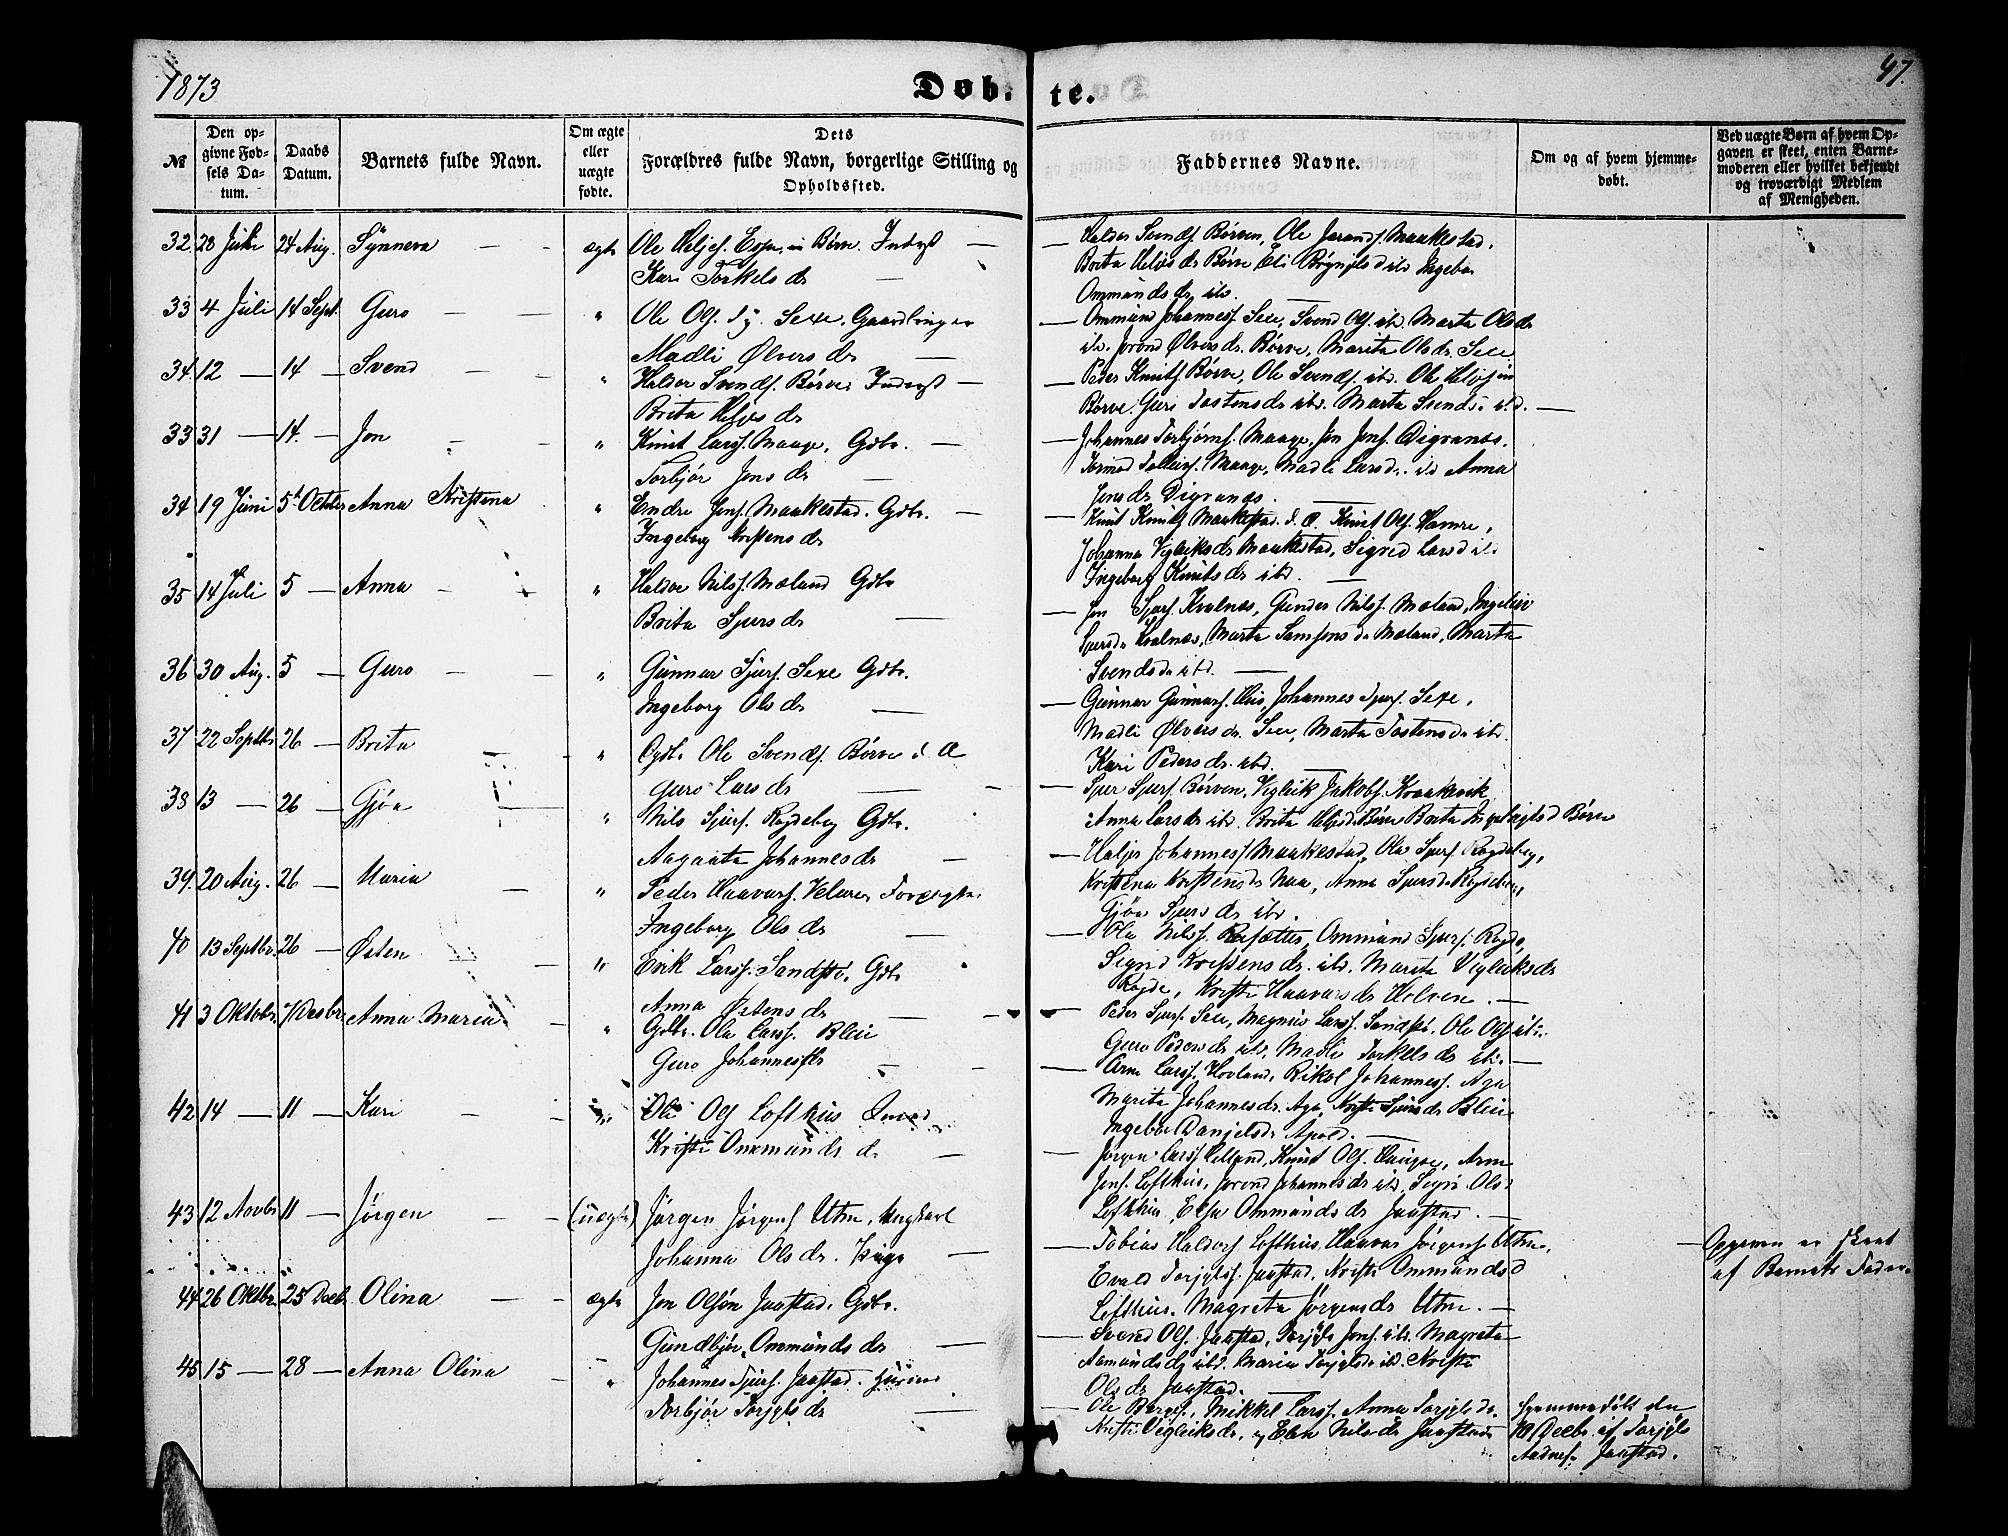 1873
Døb-
te.
47.
№
Den opgivne Fødsels Datum.
Daabs Datum.
Barnets fulde Navn.
Om ægte eller uægte fødte.
Dets Forældres fulde Navn, borgerlige Stilling og Opholdssted.
Faddernes Navne.
Om og af hvem hjemmedøbt.
Ved uægte Børn af hvem Opgaven er skeet, enten Barnemoderen eller hvilket bekjendt og troværdigt Medlem af Menigheden.
32 28 Juli 24 Aug. Synneva ægte Ole Heljes. Børve. Inderst
Kari Torkelsdr
Haldor Svends. Børven, Ole Jorands. Maakestad,
Brita Børve, Ingebor
Ommundsdr. ibd.
33 4 Juli 14 Sept. Guro " Ole Ols. Sexe. Gaardbruger
Madli Ølversdr
Ommund Johanness. Sexe, Svend Ols. ibd. Marta Olsdr
ibd. Jorond Ølversdr. Børve, Marita Olsdr. Sexe
34 12 — 14 — Svend " Haldor Svends. Børve. Inderst
Brita Heljesdr
Peder Knuts. Børve, Ole Svends. ibd. Ole
Børve. Guri Tostensdr ibd. Marta Svendsd. ibd.
33 31 — 14. — Jon " Knut Larss. Maage, Gdbr.
Torbjør Jonsdr
Johannes Torbjørns. Maage, Jon Jons. Digranes.
Tormod Maage, Madli Larsd. ibd Anna
Jonsdr Digranes.
34 19 Juni 5t October Anna Kristena " Endre Jons. Maakestad. Gdbr.
Ingeborg Kristensdr
Knut Knuts. Maakestad. d. Æ. Knut Ols. Hamre,
Johanna Vigleiksdr Maakestad, Sigrid Larsd ibd
Ingeborg Knutsdr ibd.
35 14 Juli 5 — Anna " Haldor Nilss. Mæland Gdbr
Brita Sjursdr
Jon Sjurs. Kvalnes, Gunder Nilss. Mæland, Ingeleiv
Sjursdr Kvalnes, Marta Samsonsdr Mæland, Marta
Svendsdr ibd.
36 30 Aug. 5 — Guro " Gunnar Sjurs. Sexe Gdbr.
Ingeborg Olsdr
Gunnar Gunnars. Huis, Johannes Sjurs. Sexe,
Madli Ølversdr. Sexe, Marta Tostensdr ibd.
Kari Pedersdr. ibd.
37 22 Septbr 26 — Brita " Gdbr. Ole Svends. Børve d. Æ
Guro Larsdr
Sjur Sjurs. Børven, Vigleik Jakobs. Kraakevik
Anna Larsdr ibd. Brita Børve Brita Børve
38 13 — 26 — Gjøa " Nils Sjurs. Rogdeberg Gdbr.
Aagaata Johannesdr
Heljes Johanness Maakestad, Ola Sjurs. Rogdeberg,
Kristena Kristensdr Naa, Anna Sjursdr Rogdeberg,
Gjøa Sjursdr ibd.
39. 20 Aug. 26 — Maria " Peder Haavars. Velure,
Ingeborg Olsdr
Ola Nilss. Ommund Sjurs. Rogde,
Sigrid Kristensdr. ibd. Marita Vigleiksdr
Rogde, Kristi Haavarsdr Helven.
40 13 Septbr. 26 — Østen " Erik Larss. Sandstø, Gdbr
Anna Østensdr
Peder Sjurs. Sexe, Magnus Larss. Sandstø. Ole Ols. ibd.
Guro Pedersdr ibd, Madli Torkelsdr ibd.
41 3 Oktobr. 7 Desbr. Anna Maria " Gdbr. Ola Larss. Bleie
Guro Johannesdr
Arne Larss. Hovland, Rikol Johanness. Aga
Marita Johannesdr. Aga, Kristi Sjursdr Bleie
Ingebor Danjelsdr Apold.
42 14 — 11 — Kari " Ole Ols Lofthus
Kristi Ommundsdr.
Jørgen Larss. Helland, Knut Ols. Arne
Jons. Lofthus, Jorond Johannesdr ibd, Sigri Olsd
Lofthus, Elsa Ommundsdr Jaastad.
43 12 Novbr 11 — Jørgen (uægte) Jørgen Jørgens Utne, Ungkarl
Johanna Olsdr. Pige
Tobias Haldors. Lofthus, Haavar Jørgens. Utne,
Evald Torjyls. Jaastad, Kristi Ommundsd
Lofthus. Magreta Jørgensdr Utne.
Opgaven er skeet
af Barnets Fader.
44 26 Oktbr. 25 Decbr. Olina ægte Jon Olsøn Jaastad. Gdbr.
Gundbjør Ommundsdr
Svend Ols. Jaastad, Torjyls Jons. ibd. Magreta
Aamundsdr ibd. Maria Torjylsdr ibd. Kristi
Olsdr Jaastad.
45 15 — 28 — Anna Olina " Johannes Sjurs. Jaastad.
Torbjør Torjylsdr
Ole Børges., Mikkel Larss. Anna Torjylsdr.
Kristi Vigleiksdr. og Elen Nilsdr Jaastad
hjemmedøbt den
10 Decbr. af Torjyls
Jaastad.